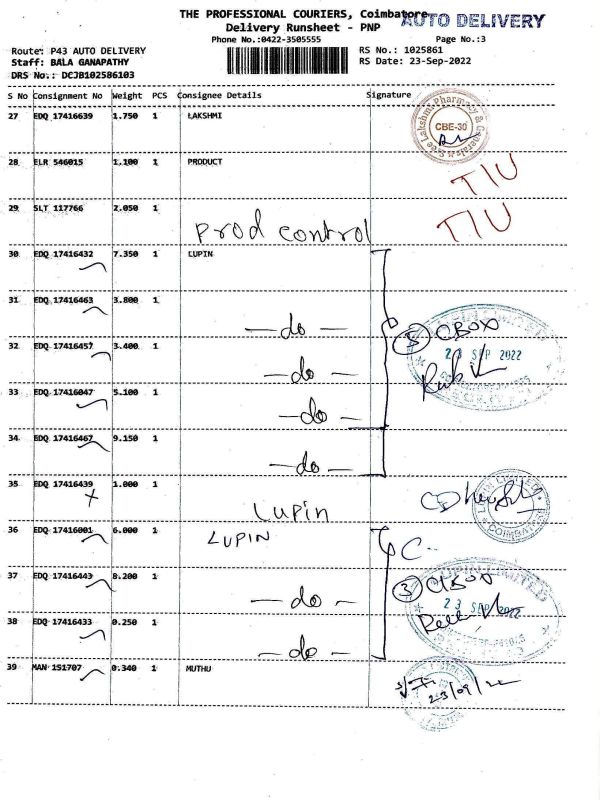 THE PROFESSIONAL COURIERS, Coimbatore
AUTO DELIVERY
Delivery Runsheet - PNP
Phone No.:0422-3505555 Page No.:3
Route: P43 AUTO DELIVERY RS No.: 1025861
Staff: BALA GANAPATHY RS Date: 23-Sep-2022
DRS No.: DCJB102586103
S No Consignment No Weight PCS Consignee Details Signature
27 EDQ 17416639 1.750 1 LAKSHMI
Sree Lakshmi Pharmacy & Generals
CBE-30
28 ELR 546015 1.100 1 PRODUCT TIU
29 SLT 117766 2.050 1 Prod control TIU
30 EDQ 17416432 7.350 1 LUPIN
31 EDQ 17416463 3.800 1 -do-
5 CBOX
32 EDQ 17416457 3.400 1 -do-
23 SEP 2022
33 EDQ 17416047 5.100 1 -do-
34 EDQ 17416467 9.150 1 -do-
35 EDQ 17416439 1.000 1 Lupin
COIMBATORE
36 EDQ 17416001 6.000 1 LUPIN
37 EDQ 17416443 8.200 1 -do-
3 CBOX
LUPIN LIMITED
23 SEP 2022
38 EDQ 17416433 0.250 1 -do-
39 MAN 151707 0.340 1 MUTHU
23/09/22